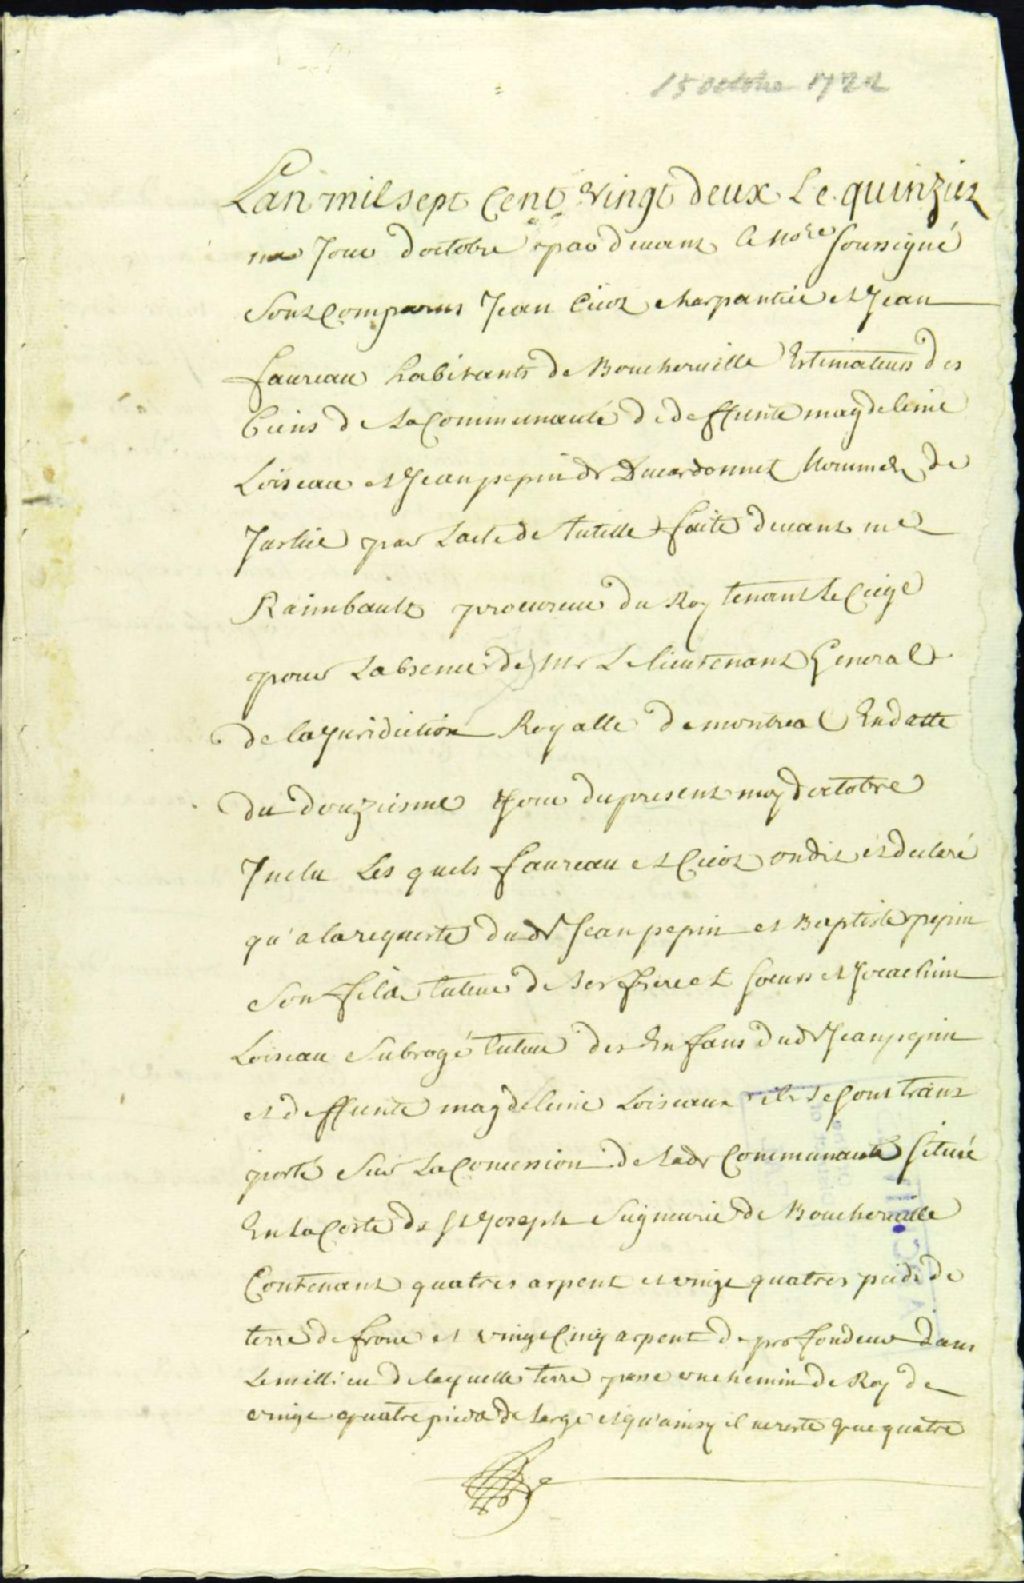 15 octobre 1722
Lan mil sept Cent vingt deux Le quinziez
me Jour doctobre par devant le Nore soussigné
Sont Comparus Jean Cicot charpantier et Jean
faureau habitants de Boucherville Estimateurs des
biens de La Communauté de deffunte magdeleine
Loiseau et Jean pepin dt Ducardonnet Nommez de
Justice par Lacte de tutelle faite devant me
Raimbault procureur du Roy tenant le Ciege
pour Labsence de Mr Le lieutenant General
de la Juridiction Royalle de montreal En datte
du douziesme Jour du present moy doctobre
Inclu Les quels faureau et Cicot ondit et decleré
qu'a la requeste dudt Jean pepin et Baptiste pepin
Son fils tuteur de Ses frere et Soeurs et Joachim
Loiseau Subrogé tuteur des Enfans dudt Jean pepin
et deffunte magdeleine Loiseaux ils se sont trans
porté Sur La Concession de Ladt Communauté Situé
En La Coste de St Joseph Seigneurie de Boucherville
Contenant quatres arpent et vingt quatres pieds de
terre de front et vingt Cinq arpent de profondeur dans
Le millieu de laquelle terre passe un chemin de Roy de
vingt quatre pieds de large et qu'ainsy il ne reste que quatre